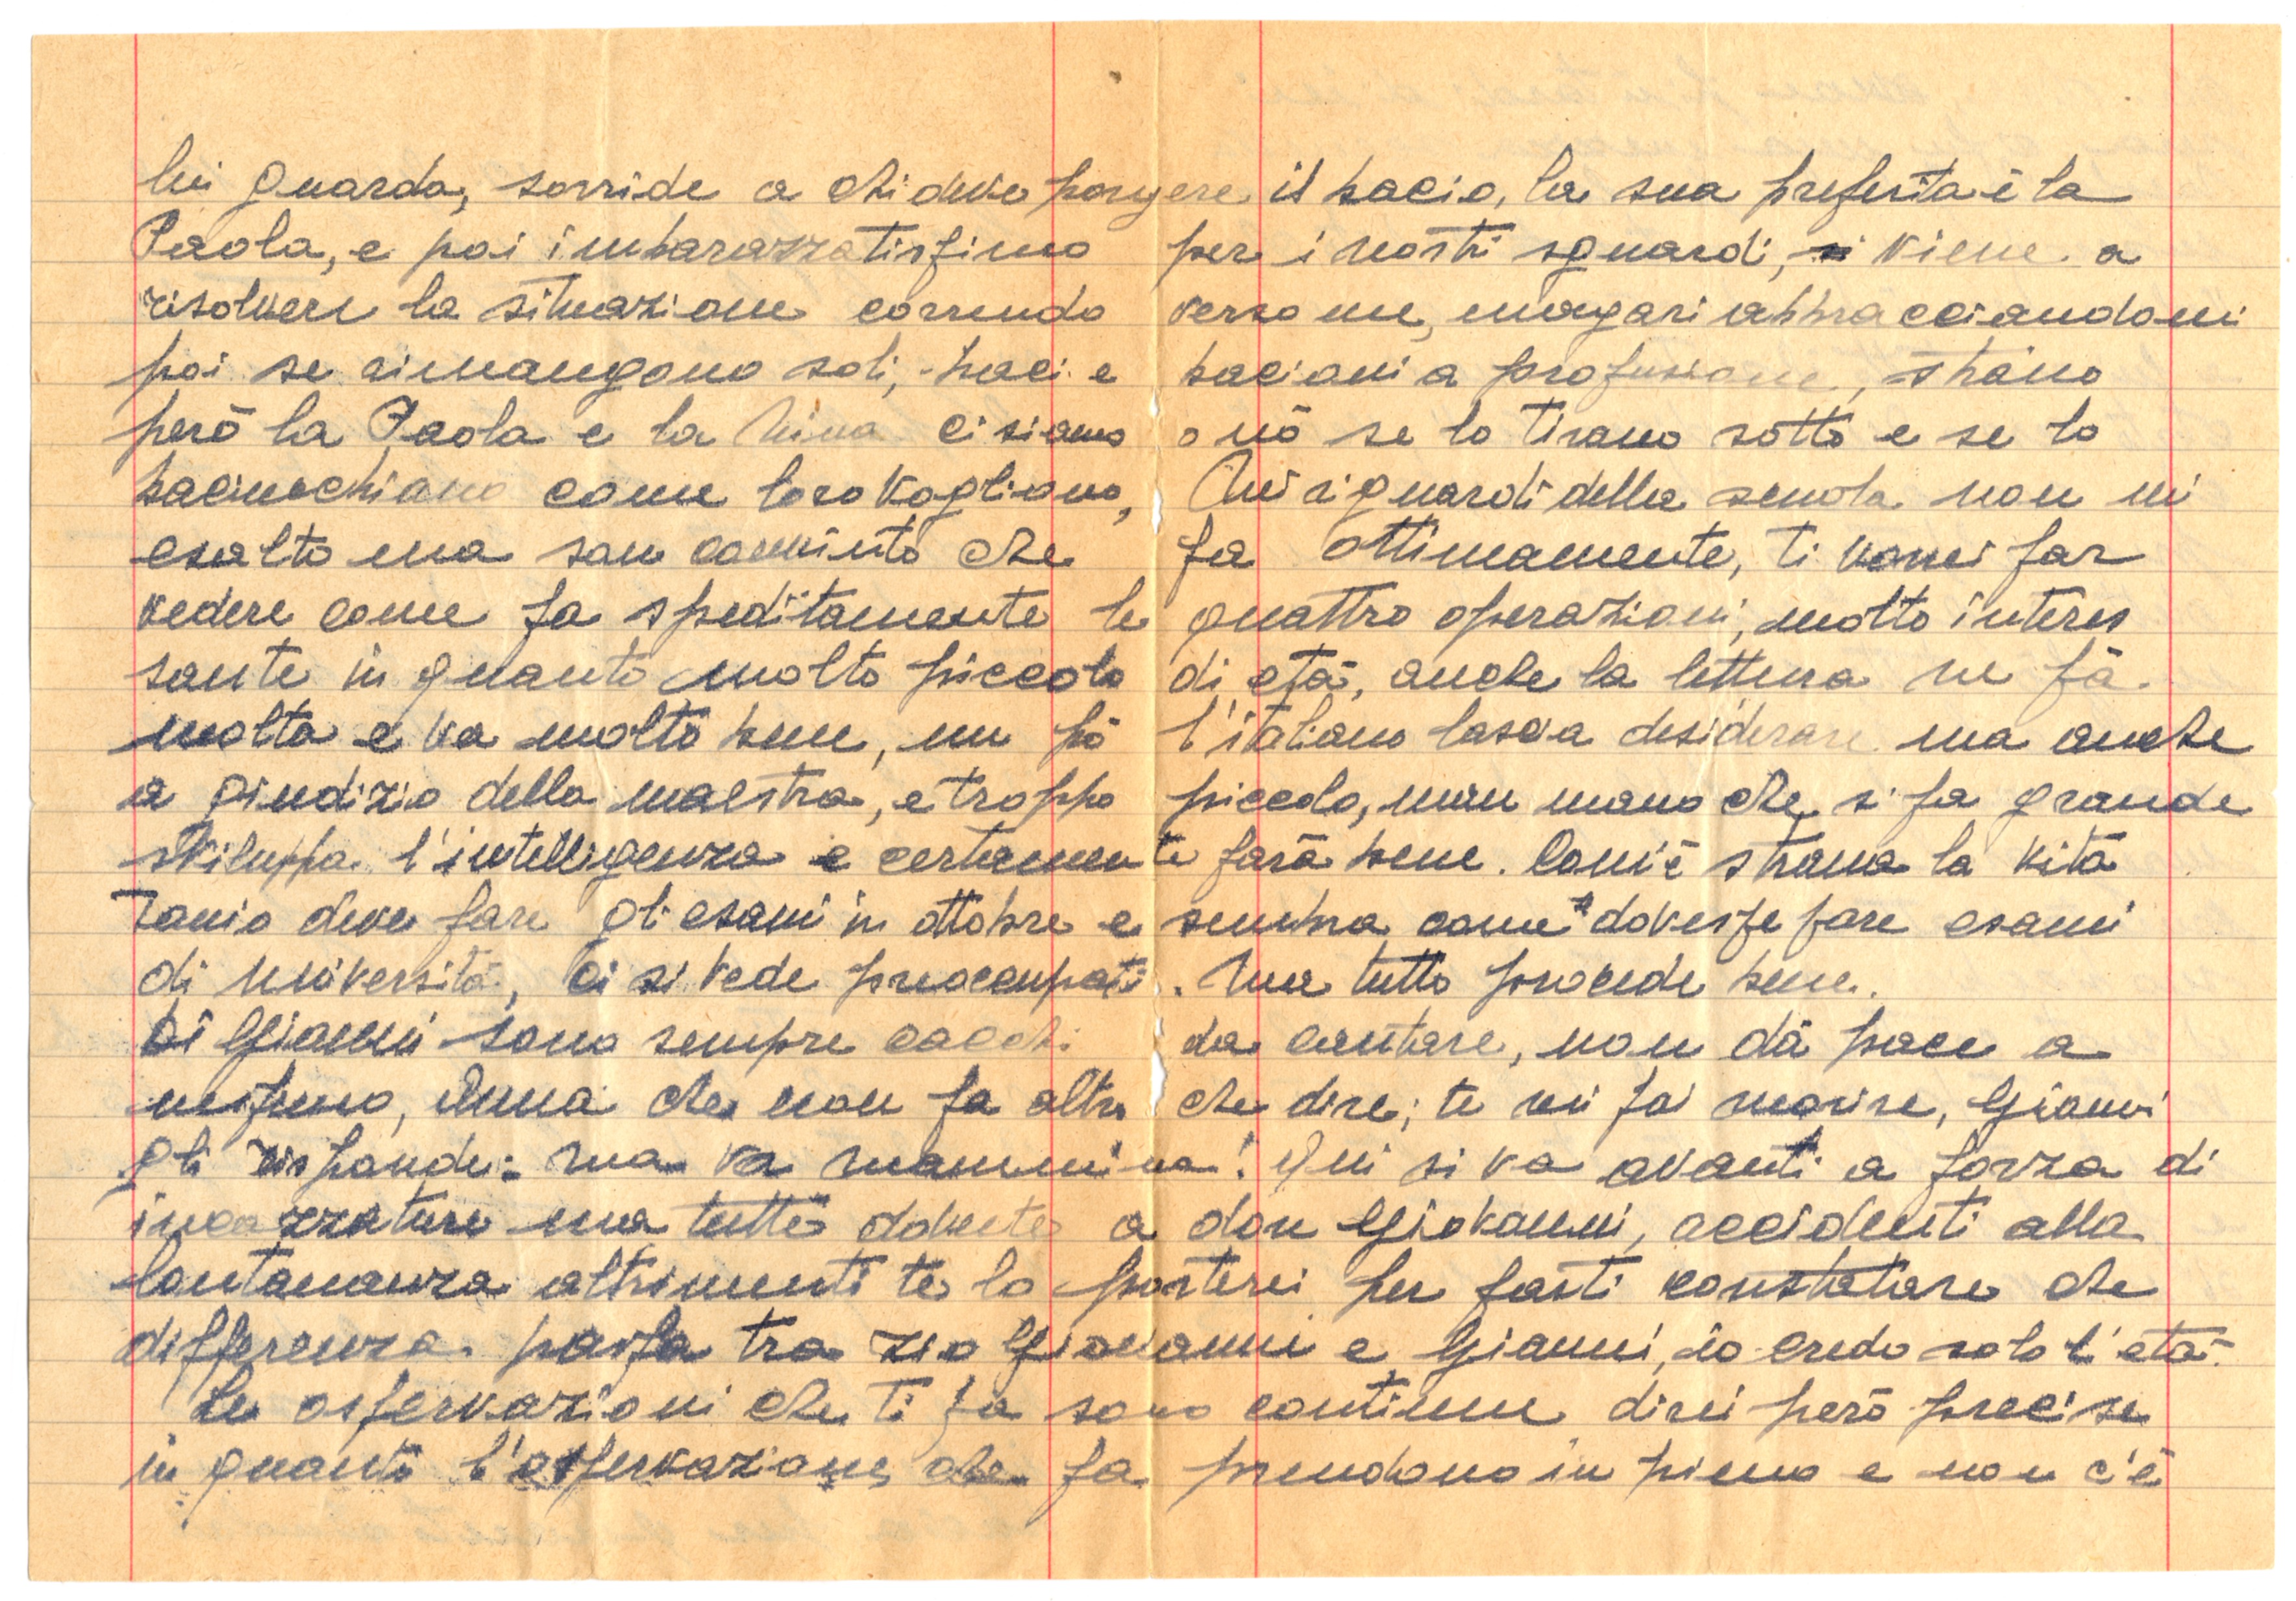 lui guarda, sorride a chi deve porgere il bacio, la sua preferita è la
Paola, e poi imbarazzatissimo per i nostri sguardi, viene a
risolvere la situazione correndo verso me, magari abbracciandomi
poi se rimangono soli, baci e bacioni a profusione, strano
però la Paola e la Nina ci siamo o nò se lo tirano sotto e se lo
baciucchiano come loro vogliono, Nei riguardi della scuola non mi
esalto ma son convinto che fa ottimamente, ti vorrei far
vedere come fa speditamente le quattro operazioni, molto interes
sante in quanto molto piccolo di età, anche la lettura ne fà
molta e va molto bene, un pò l'italiano lascia desiderare ma anche
a giudizio della maestra, e troppo piccolo, man mano che si fa grande
sviluppa l'intelligenza e certamente farà bene. Com'è strana la vita
Tonio deve fare gli esami in ottobre e sembra come dovesse fare esami
di università, ci si vede preoccupati. Ma tutto procede bene.
Di Gianni sono sempre cacchi da contare, non dà pace a
nessuno, Anna che non fa altro che dire; te mi fai morire, Gianni
gli risponde: ma va mammina! Qui si va avanti a forza di
incazzature ma tutte dovute a don Giovanni, accidenti alla
lontananza altrimenti te lo porterei per farti constatare che
differenza passa tra zio Giovanni e Gianni, io credo solo l'età.
Le osservazioni che ti fa sono continue direi però precise
in quanto l'osservazione che fa prendono in pieno e non c'è